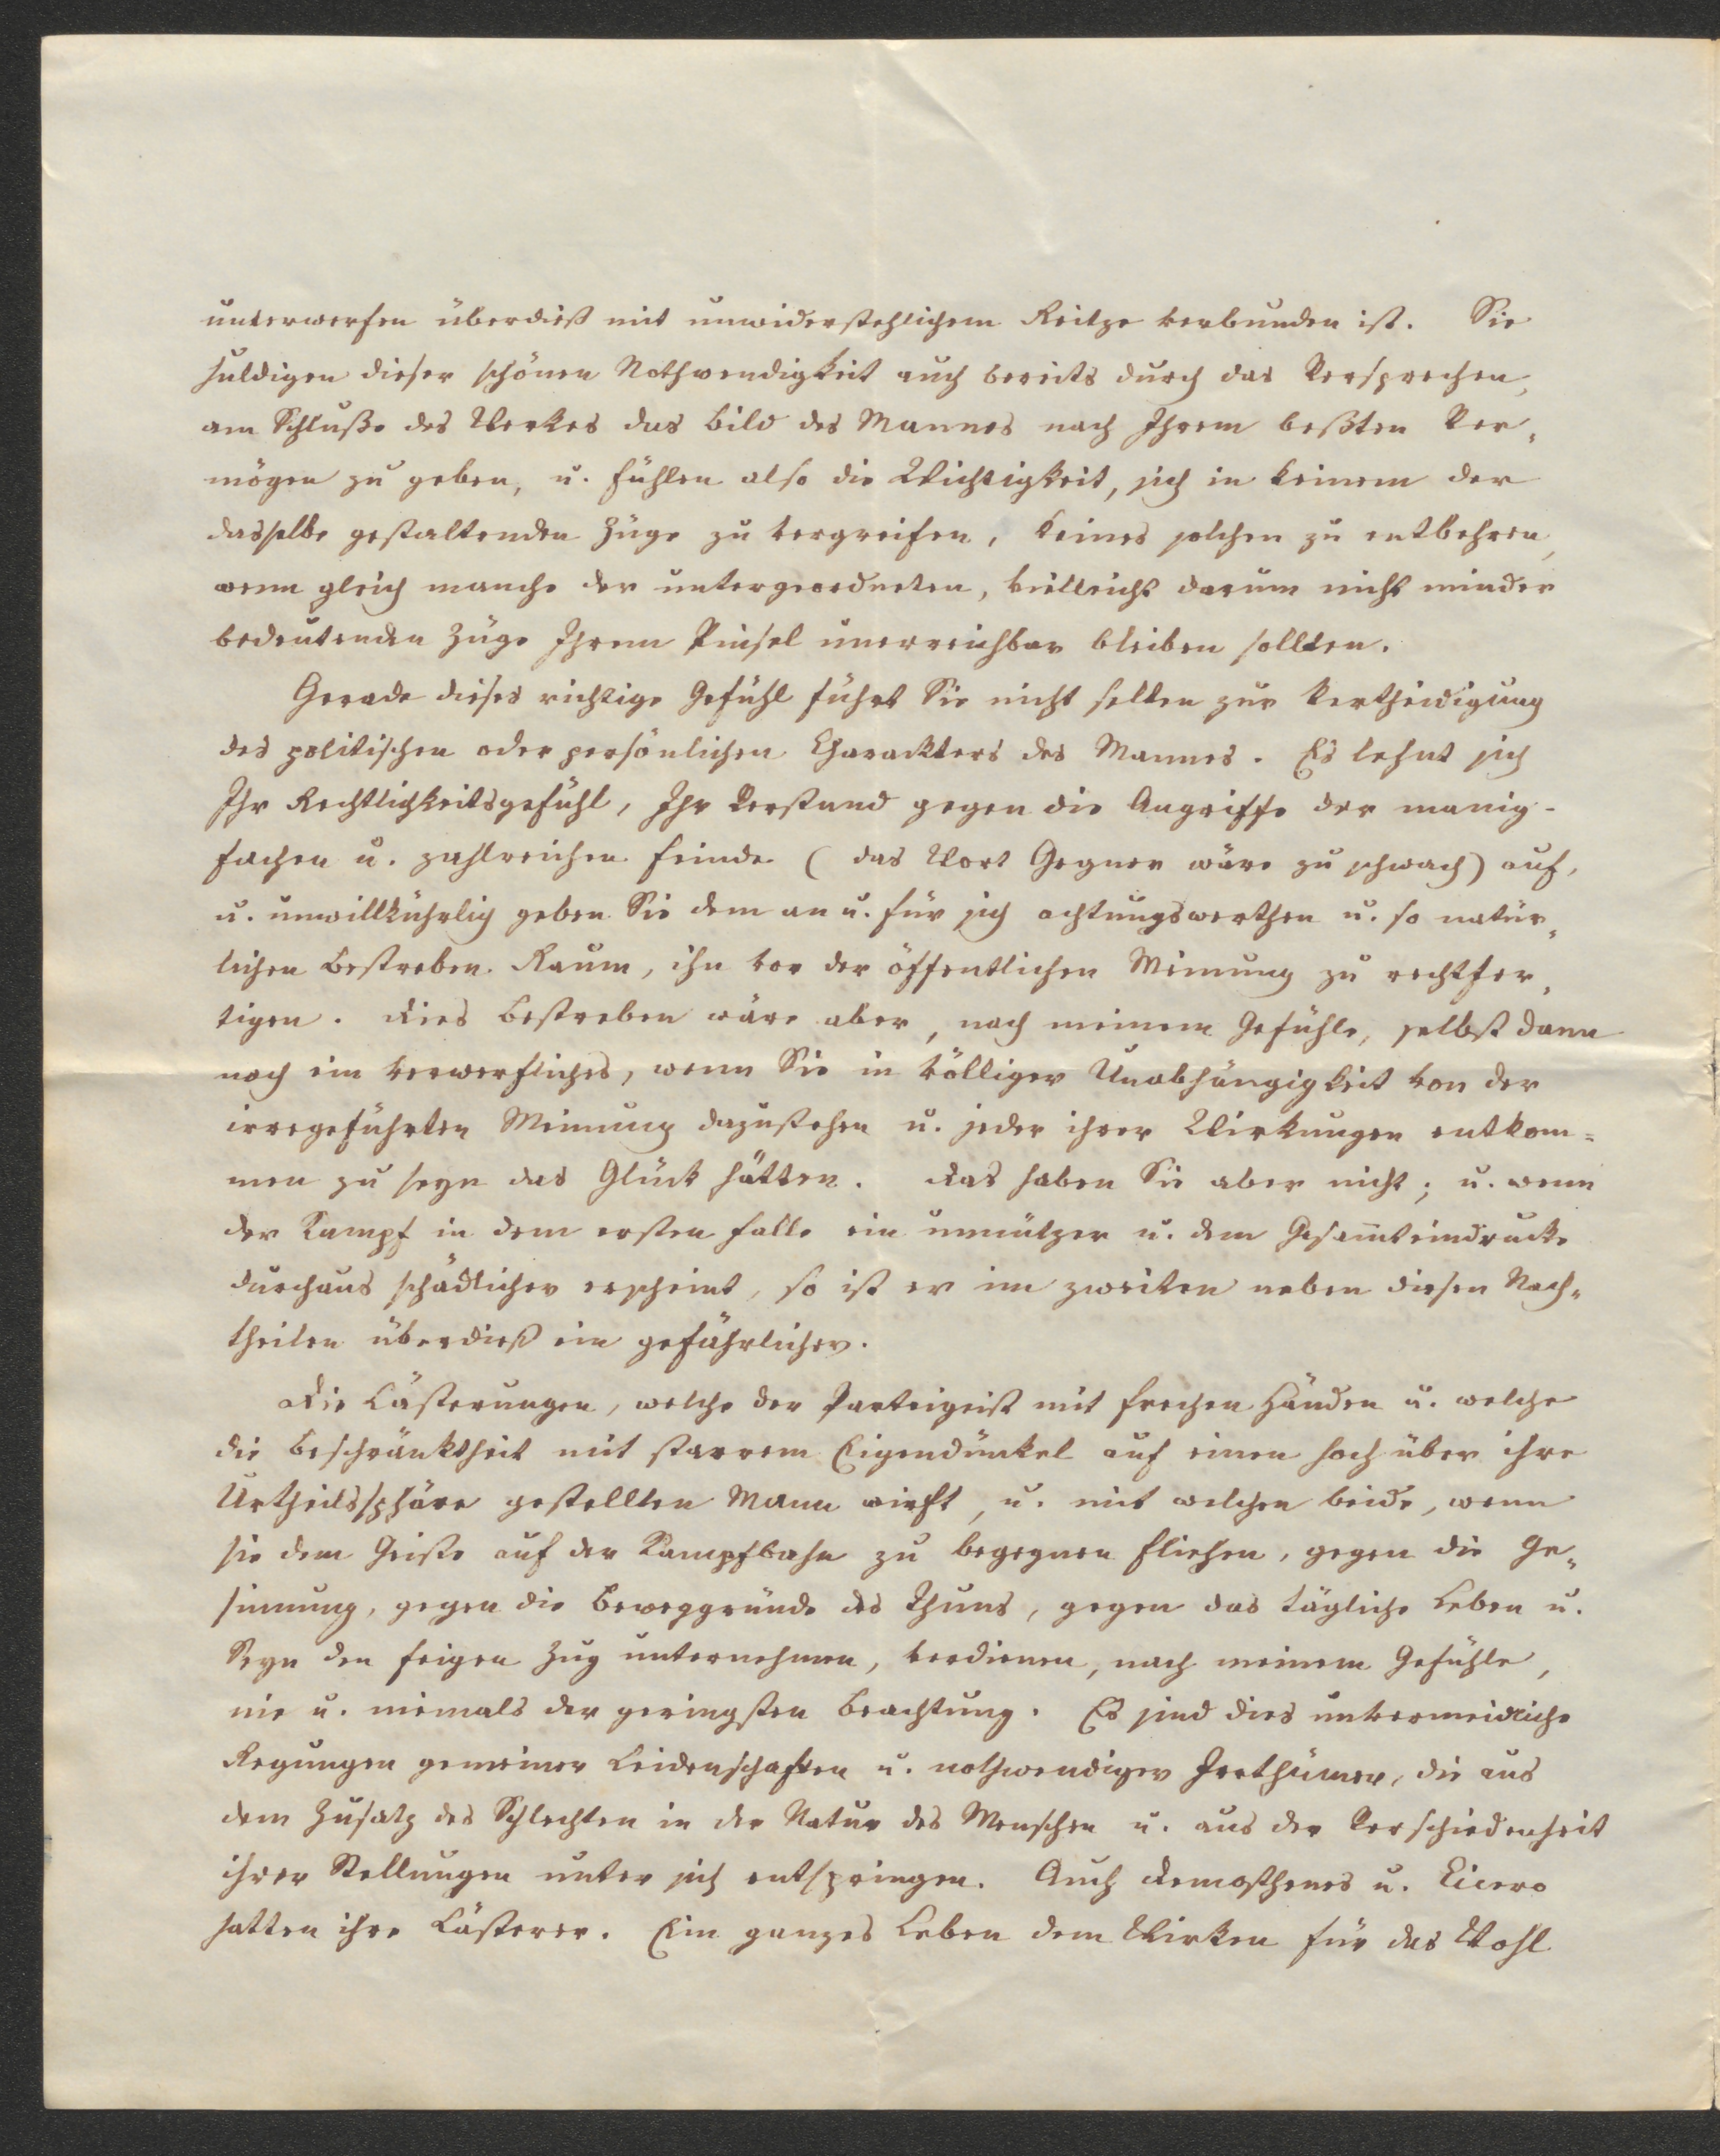 unterwerfen überdieß mit unwiderstehlichem Reitze verbunden ist. Sie
huldigen dieser schönen Nothwendigkeit auch bereits durch das Versprechen,
am Schluße des Werkes das Bild des Mannes nach Ihrem beßten Ver„
mögen zu geben, u. fühlen also die Wichtigkeit, sich in keinem der
dasselbe gestaltenden Züge zu vergreifen, keines solchen zu entbehren,
wenn gleich manche der untergeordneten, vielleicht darum nicht minder
bedeutenden Züge Ihrem Pinsel unerreichbar bleiben sollten.
Gerade dieses richtige Gefühl führt Sie nicht selten zur Vertheidigung
des politischen oder persönlichen Charackters des Mannes. Es lehnt sich
Ihr Rechtlichkeitsgefühl, Ihr Verstand gegen die Angriffe der manig-
fachen u. zahlreichen Feinde (das Wort Gegner wäre zu schwach) auf,
u. unwillkührlich geben Sie dem an u. für sich achtungswerthen u. so natür„
lichen Bestreben Raum, ihn vor der öffentlichen Meinung zu rechtfer„
tigen. Dies Bestreben wäre aber, nach meinem Gefühle, selbst dann
noch ein verwerfliches, wenn Sie in völliger Unabhängigkeit von der
irregeführten Meinung dazustehen u. jeder ihrer Wirkungen entkom=
men zu seyn das Glück hätten. Das haben Sie aber nicht; u. wenn
der Kampf in dem ersten Falle ein unnützer u. dem Gesam̄teindrucke
durchaus schädlicher erscheint, so ist er im zweiten neben diesen Nach„
theilen überdieß ein gefährlicher.
Die Lästerungen, welche der Parteigeist mit frechen Händen u. welche
die Beschränktheit mit starrem Eigendünkel auf einen hoch über ihre
Urtheilssphäre gestellten Mann wirft, u. mit welchen beide, wenn
sie dem Geiste auf der Kampfbahn zu begegnen fliehen, gegen die Ge„
sinnung, gegen die Beweggründe des Thuns, gegen das tägliche Leben u.
Seyn den feigen Zug unternehmen, verdienen, nach meinem Gefühle,
nie u. niemals der geringsten Beachtung. Es sind dies unvermeidliche
Regungen gemeiner Leidenschaften u. nothwendiger Irrthümer, die aus
dem Zusatz des Schlechten in der Natur des Menschen u. aus der Verschiedenheit
ihrer Stellungen unter sich entspringen. Auch Demosthenes u. Cicero
hatten ihre Lästerer. Ein ganzes Leben dem Wirken für das Wohl